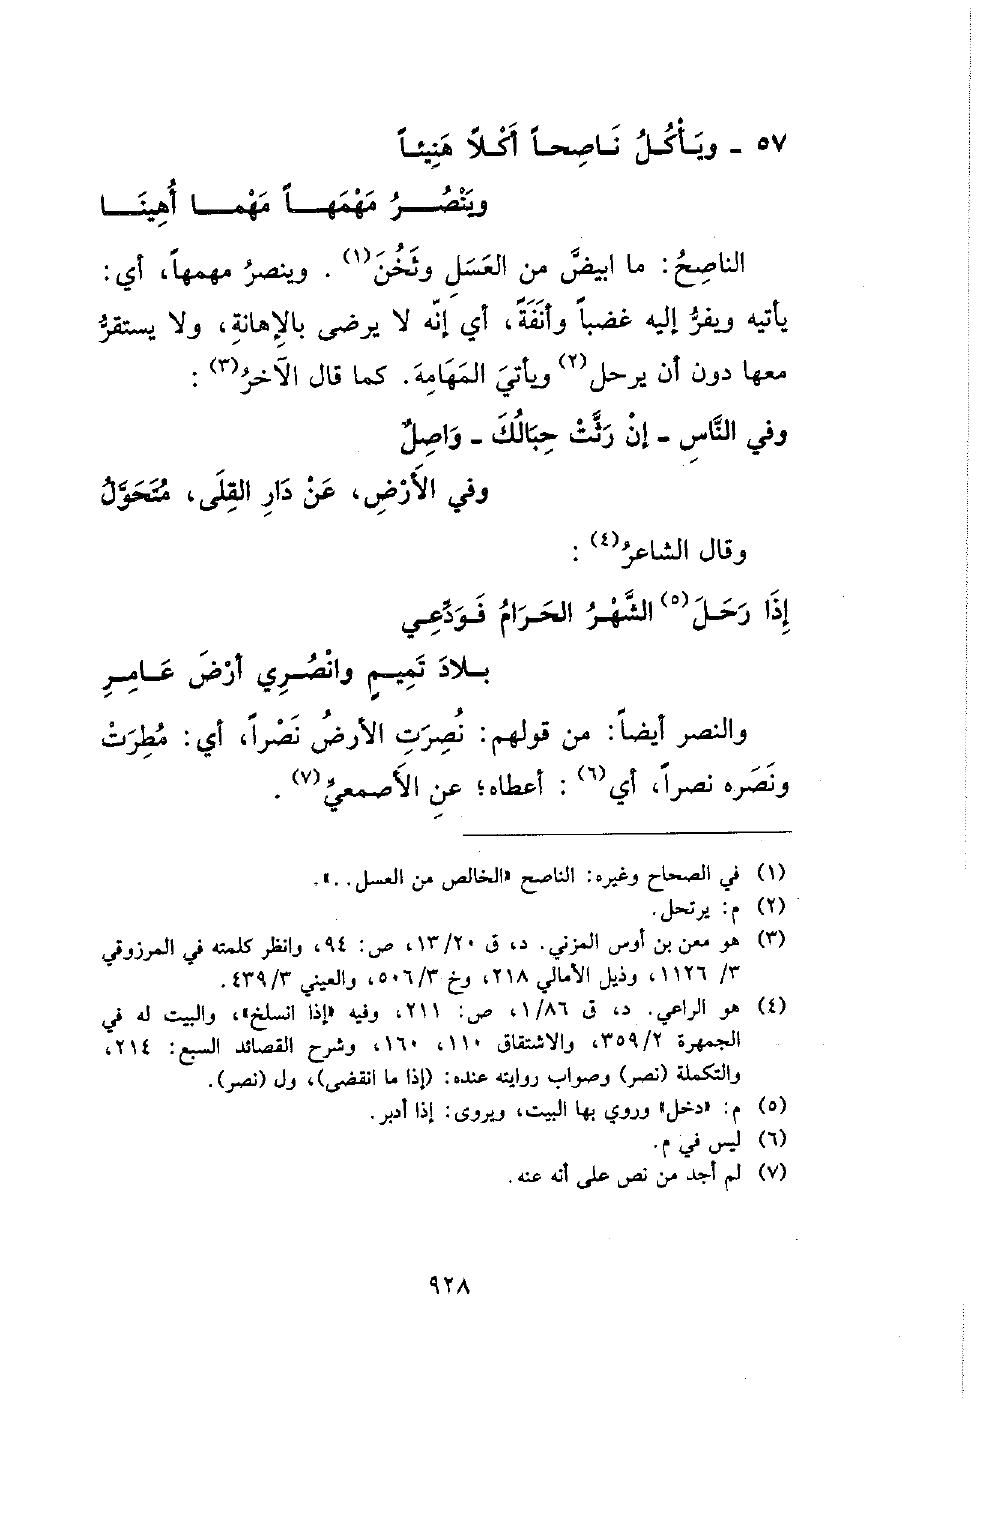 ٥٧ - ويَأْكُلُ نَاصِحاً أَكْلاً هَنِيئاً
ويَنْصُرُ مَهْمَهاً مَهْما أُهِينَا
الناصِحُ: ما ابيضَّ من العَسَلِ وثَخُنَ(١). وينصرُ مهمهاً، أي:
يأتيه ويفرُّ إليه غضباً وأنَفَةً، أي إنّه لا يرضى بالإهانةِ، ولا يستقرُّ
معها دون أن يرحل(٢) ويأتيَ المَهَامِهَ. كما قال الآخرُ(٣):
وفي النَّاسِ - إنْ رَثَّتْ حِبَالُكَ - وَاصِلٌ
وفي الأَرْضِ، عَنْ دَارِ القِلَى، مُتَحَوَّلُ
وقال الشاعرُ(٤):
إِذَا رَحَلَ(٥) الشَّهْرُ الحَرَامُ فَوَدِّعِي
بلادَ تَمِيمٍ وانْصُرِي أرْضَ عَامِرِ
والنصر أيضاً: من قولهم: نُصِرَتِ الأرضُ نَصْراً، أي: مُطِرَتْ
ونَصَره نصراً، أي(٦): أعطاه؛ عنِ الأَصمعيِّ(٧).
(١) في الصحاح وغيره: الناصح «الخالص من العسل..».
(٢) م: يرتحل.
(٣) هو معن بن أوس المزني. د، ق ١٣/٢٠، ص: ٩٤، وانظر كلمته في المرزوقي
٣/ ١١٢٦، وذيل الأمالي ٢١٨، وخ ٥٠٦/٣، والعيني ٤٣٩/٣.
(٤) هو الراعي. د، ق ١/٨٦، ص: ٢١١، وفيه «إذا انسلخ»، والبيت له في
الجمهرة ٣٥٩/٢، والاشتقاق ١١٠، ١٦٠، وشرح القصائد السبع: ٢١٤،
والتكملة (نصر) وصواب روايته عنده: (إذا ما انقضى)، ول (نصر).
(٥) م: «دخل» وروي بها البيت، ويروى: إذا أدبر.
(٦) ليس في م.
(٧) لم أجد من نص على أنه عنه.
٩٢٨